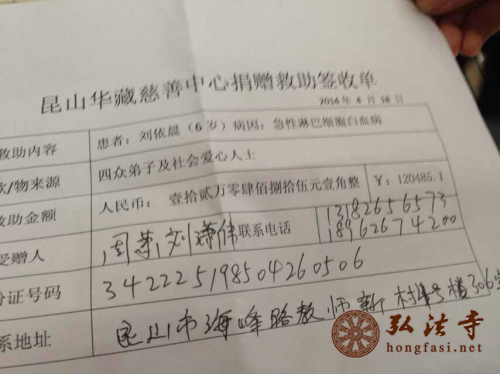 昆山华藏慈善中心捐赠救助签收单
2014 年 4 月 18 日
救助内容 患者：刘依晨（6岁）病因：急性淋巴细胞白血病
/物来源 四众弟子及社会爱心人士
救助金额 人民币： 壹拾贰万零肆佰捌拾伍元壹角整 ￥：120485.1
受赠人 联系电话 13182656573
18962674200
份证号码 342225198504260506
系地址 昆山市海峰路教师新村 号楼306室
弘法寺
hongfasi.net